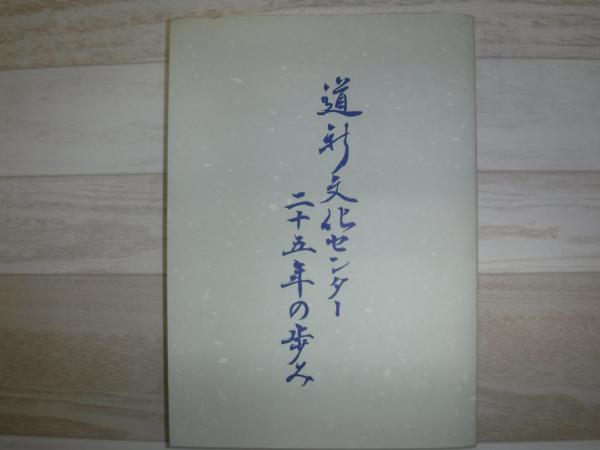 道新文化センター
二十五年の歩み